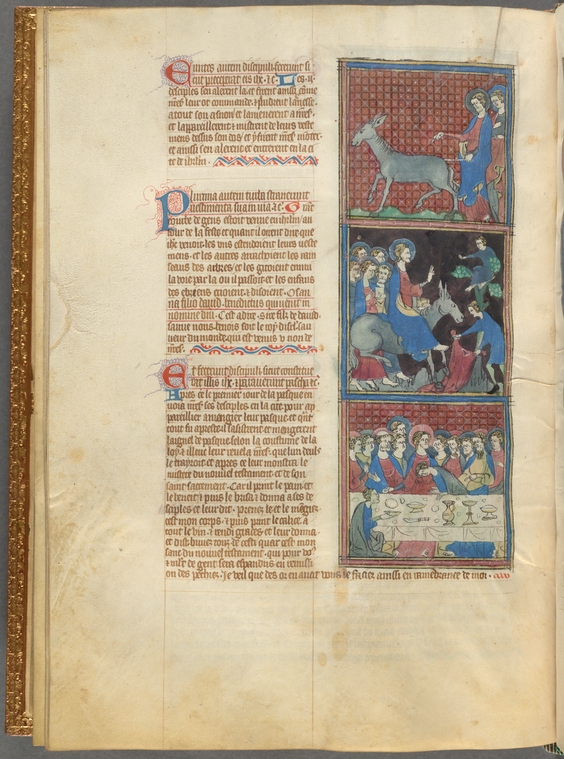 Euntes autem discipuli fecerunt si
cut precepit eis ihc. Les .ii.
desciples sen alerent la et firent ainsi come
leur ot commande
a tout son asnon et lamenerent a
et lapareillerent et mistrent de leurs veste
mens dessus son dos et
et ainsi sen alerent et entrerent en la ci
te de iherlm.
Plurima autem turba strauerunt
uestimenta sua in uia
route de gens estoit venue en iherlm au
iour de la feste et quant il oirent dire que
ihc venoit les vns estendoient leurs veste
mens et les autres arrachoient les rain
seaus des arbres et les gitoient enmi
la voie par la ou il passoit et les enfans
des ebriens crioient et disoient. Osan
na filio dauid benedictus qui uenit in
nomine dni. Cest adire
sauue nous
ueur du monde qui est venus
Et fecerunt discipuli sicut constituit
illis ihc et parauerunt pascha
Apres ce le premier iour de la pasque en
uoia ses desciples en la cite pour ap
pareillier a mangier leur pasque et quant
tout fu apreste il sassistrent et mangerent
laignel de pasque selon la coustume de la
loy et illuec leur reuela que lun deuls
le trayroit et apres ce leur monstra le
mistere du nouuel testament et de son
saint sacrement. Car il print le pain et
le beneit et puis le brisa et donna a ses de
sciples et leur dit. prenez le et mengiez
cest mon corps. et puis prinst le calice a
tout le vin et rendi graces et leur donna
et dist buuez tous de cesti quar cest mon
sanc du nouuel testament. qui pour vos
et de gent sera espandus en remissi
on des pechiez. Ie veil que des or en auant vous le faciez ainssi en ramembrance de moi.